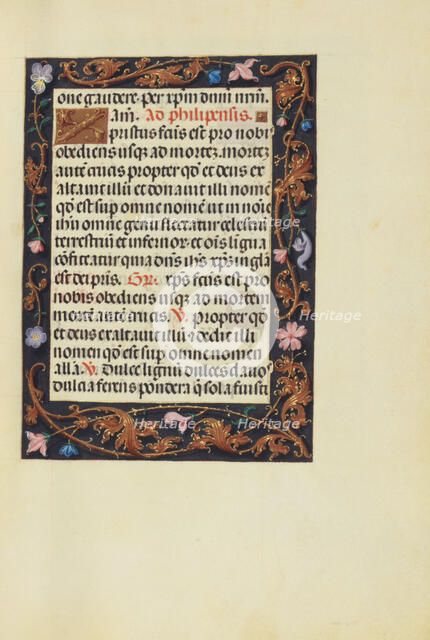 one gaudere. per xpm dnm nrm.
am. Ad philipensis.
pustus fcus est pro nobis
obediens usqʒ ad mortez. mortez
auteʒ crucis propter qd et deus ex
altavit illū et donavit illi nomē
qd est sup omne nomē ut in noīe
ihu omne genu flectatur celestiū
terrestriū et infernor. et oīs ligua
cōfiteatur quia dns ihs xps in glā
est dei pris. Gr. xps fcus est pro
nobis obediens usqʒ ad mortem
mortē. autē crucis. V. propter qd
et deus exaltavit illū et dedit illi
nomen qd est sup omne nomen
alla. V. Dulce lignū dulces clavos
dulcia ferens pondera q̄ sola fuisti
Heritage
Heritage
Heritage
Heritage
Heritage
Heritage